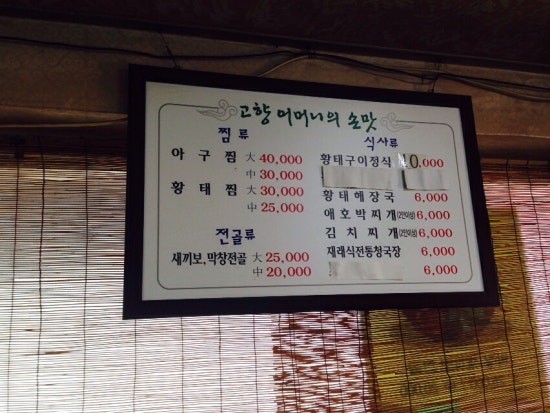 고향 어머니의 손맛
찜류
아구찜 大 40,000
中 30,000
황태찜 大 30,000
中 25,000
전골류
새끼보,막창전골 大 25,000
中 20,000
식사류
황태구이정식 10,000
황태해장국 6,000
애호박찌개(2인이상) 6,000
김치찌개(2인이상) 6,000
재래식전통청국장 6,000
6,000